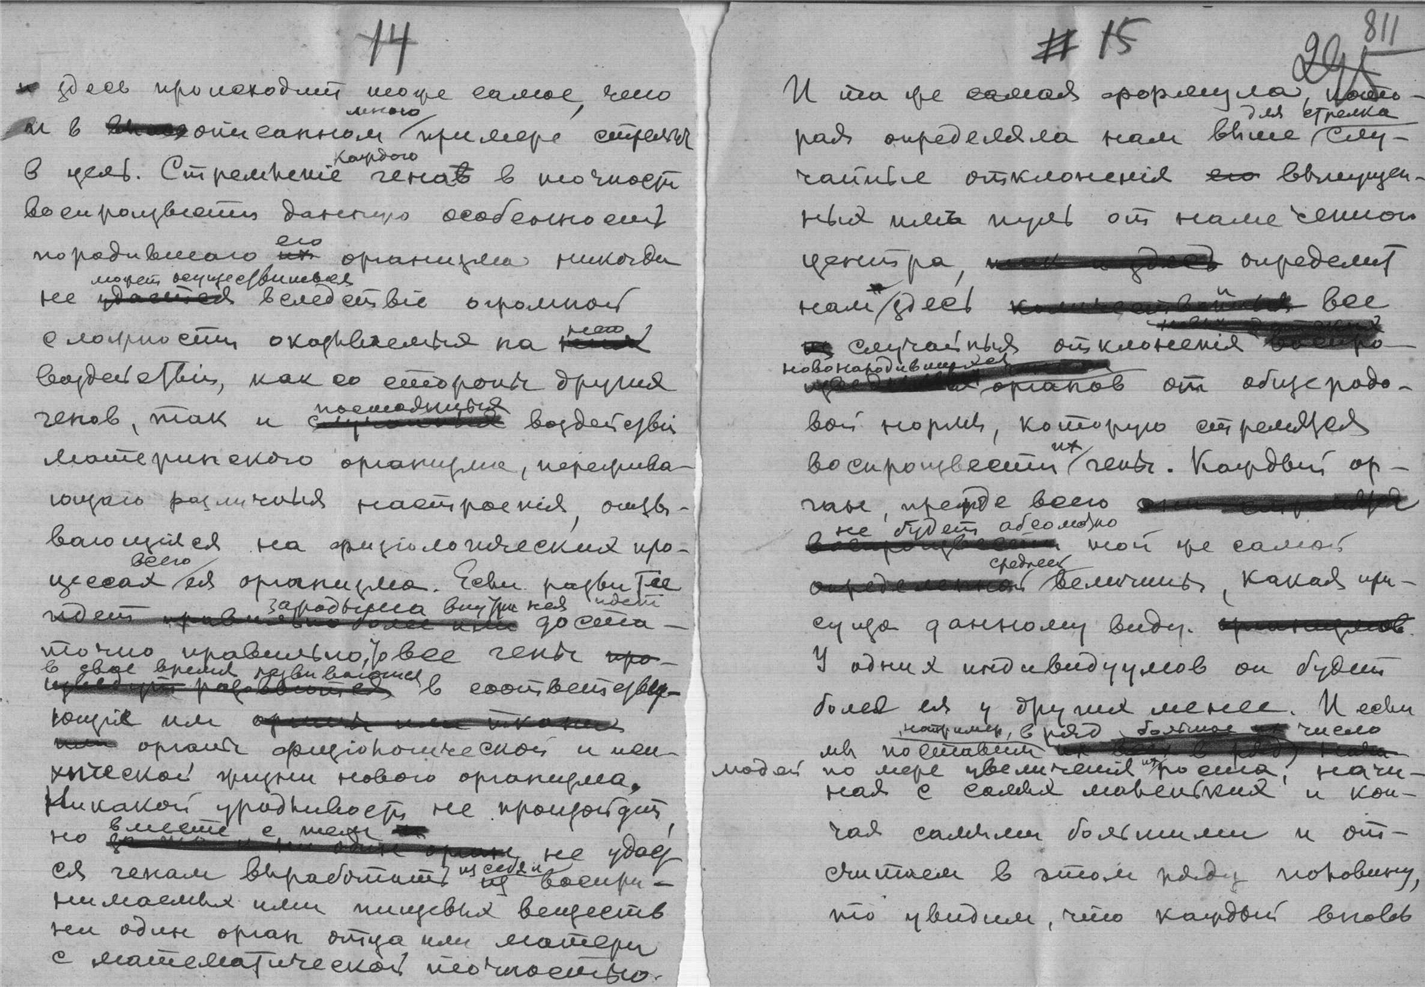 14
здесь происходит тоже самое, что
и в описанном мною примере стрельбы
в цель. Стремленіе каждого гена в точности
воспроизвести данную особенность
породившаго его организма никогда
не может осуществиться вследствіе огромной
сложности оказываемых на него
воздействій, как со стороны других
генов, так и постоянных воздействій
материнскаго организма, пережива-
ющаго различныя настроенія, отзы-
вающіяся на физіологических про-
цессах всего ея организма. Если развитіе
зародыша внутри нея идет доста-
точно правильно, то все гены
в свое время развиваются в соответству-
ющіе им
органы физіологической и пси-
хической жизни нового организма.
Никакой уродливости не произойдет,
но вместе с тем не удаст
ся генам выработать из себя и воспри-
нимаемых ими пищевых веществ
ни один орган отца или матери
с математической точностью.
# 15
811
295
И та же самая формула, кото-
рая определяла нам выше для стрелка слу-
чайные отклоненія выпущен-
ных им пуль от намеченного
центра, определит
нам здесь и все
случайныя отклоненія
новонародившихся органов от общеродо-
вой нормы, которую стремятся
воспроизвести их гены. Каждый ор-
ган, прежде всего
не будет абсолютно той же самой
средней величины, какая при-
суща данному виду.
У одних индивидуумов он будет
более ея у других менее. И если
мы поставим, например, в ряд большое число
людей по мере увеличенія их роста, начи-
ная с самых маленьких и кон-
чая самыми большими и от-
считаем в этом ряду половину,
то увидим, что каждый вновь